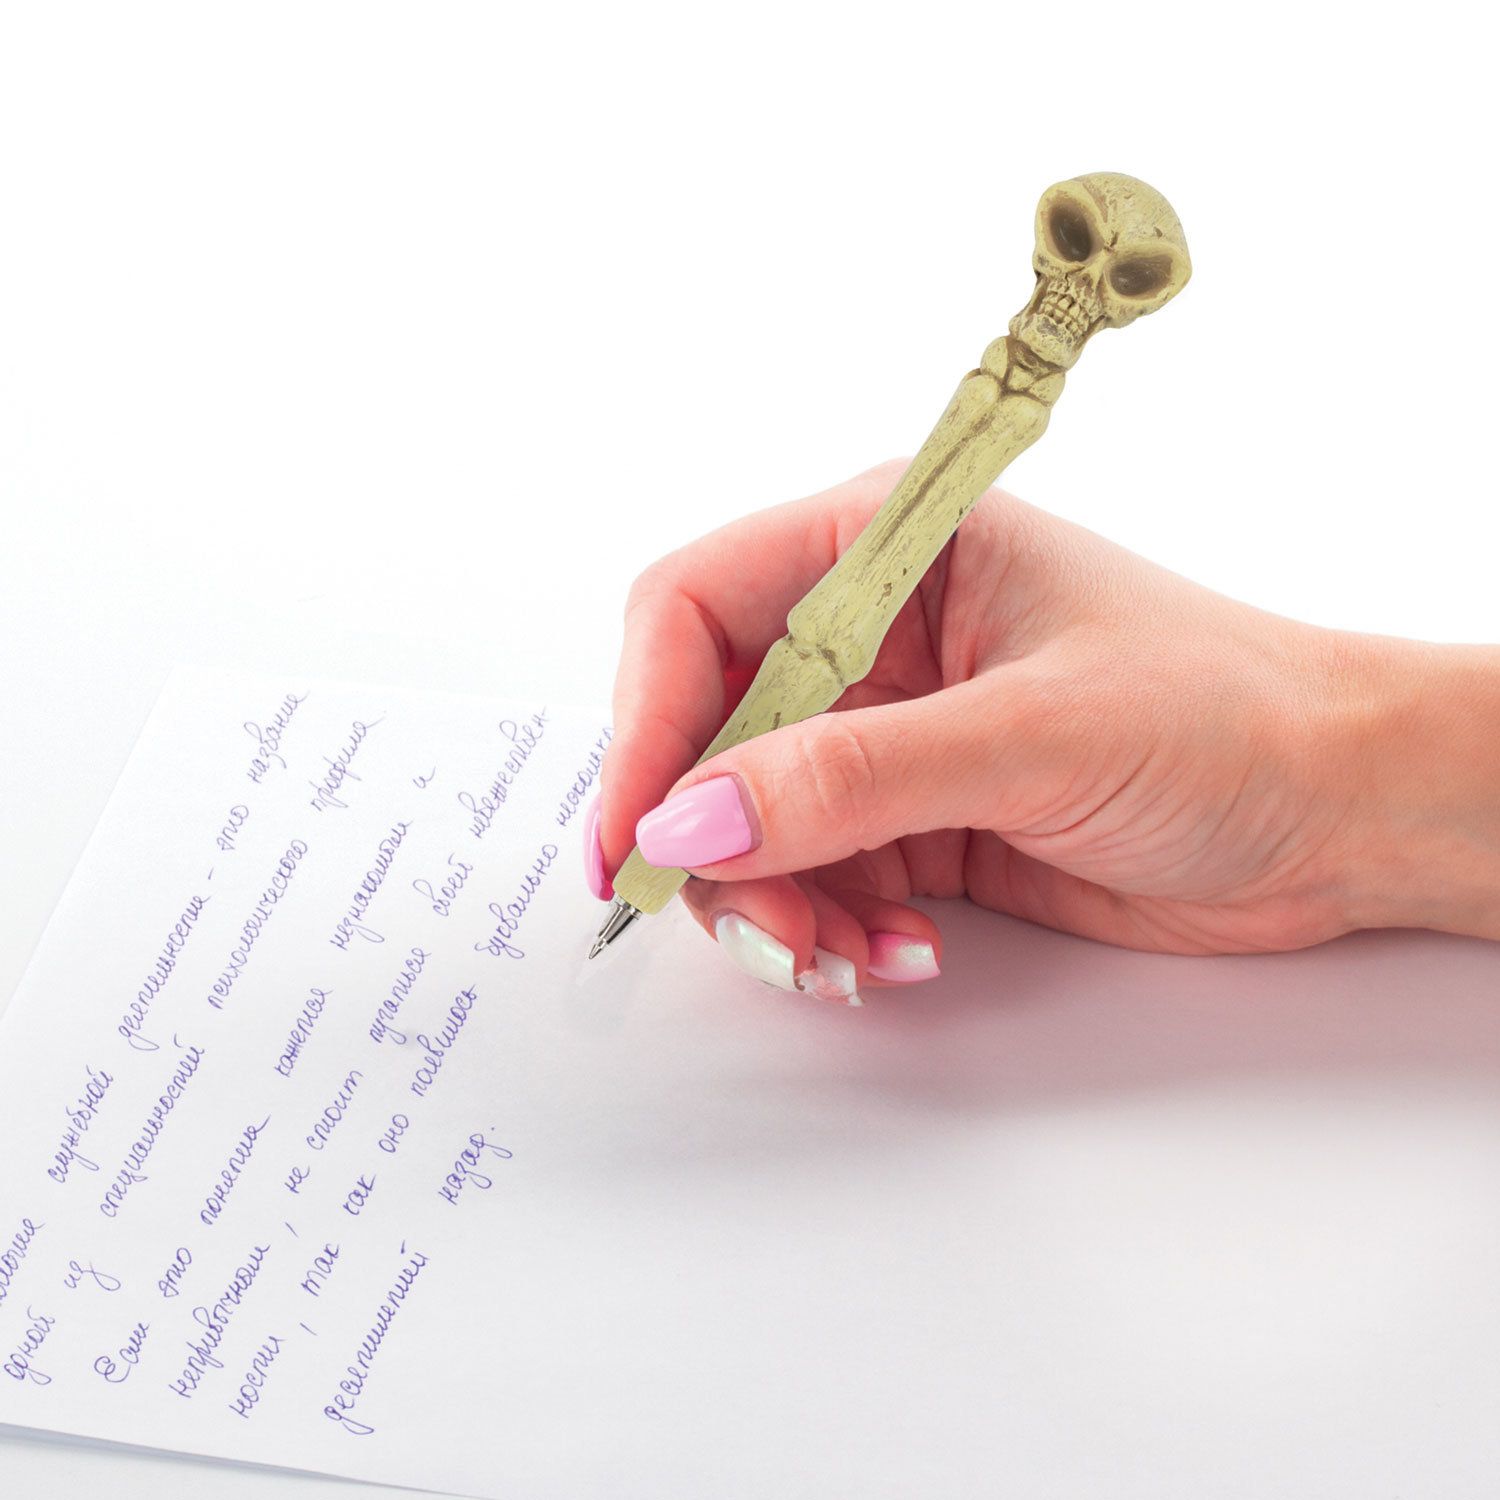 служебной деятельности - это название
одной из специальностей психологического профиля
Если это понятие кажется незнакомым и
непривычным, не стоит пугаться своей невежествен-
ности, так как оно появилось буквально несколько
десятилетий назад.